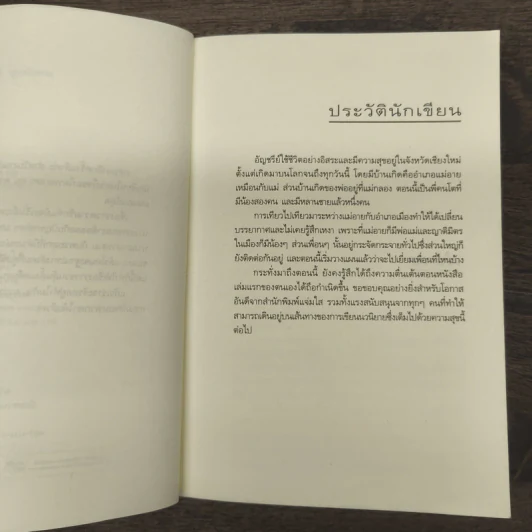 ประวัตินักเขียน
อัญชรีย์ใช้ชีวิตอย่างอิสระและมีความสุขอยู่ในจังหวัดเชียงใหม่
ตั้งแต่เกิดมาบนโลกจนถึงทุกวันนี้ โดยมีบ้านเกิดคืออำเภอแม่อาย
เหมือนกับแม่ ส่วนบ้านเกิดของพ่ออยู่ที่แม่กลอง ตอนนี้เป็นพี่คนโตที่
มีน้องสองคน และมีหลานชายแล้วหนึ่งคน
การเทียวไปเทียวมาระหว่างแม่อายกับอำเภอเมืองทำให้ได้เปลี่ยน
บรรยากาศและไม่เคยรู้สึกเหงา เพราะที่แม่อายก็มีพ่อแม่และญาติมิตร
ในเมืองก็มีน้องๆ ส่วนเพื่อนๆ นั้นอยู่กระจัดกระจายทั่วไปซึ่งส่วนใหญ่ก็
ยังติดต่อกันอยู่ และตอนนี้เริ่มวางแผนแล้วว่าจะไปเยี่ยมเพื่อนที่ไหนบ้าง
กระทั่งมาถึงตอนนี้ ยังคงรู้สึกได้ถึงความตื่นเต้นตอนหนังสือ
เล่มแรกของตนเองได้ถือกำเนิดขึ้น ขอขอบคุณอย่างยิ่งสำหรับโอกาส
อันดีจากสำนักพิมพ์แจ่มใส รวมทั้งแรงสนับสนุนจากทุกๆ คนที่ทำให้
สามารถเดินอยู่บนเส้นทางของการเขียนนวนิยายซึ่งเต็มไปด้วยความสุขนี้
ต่อไป